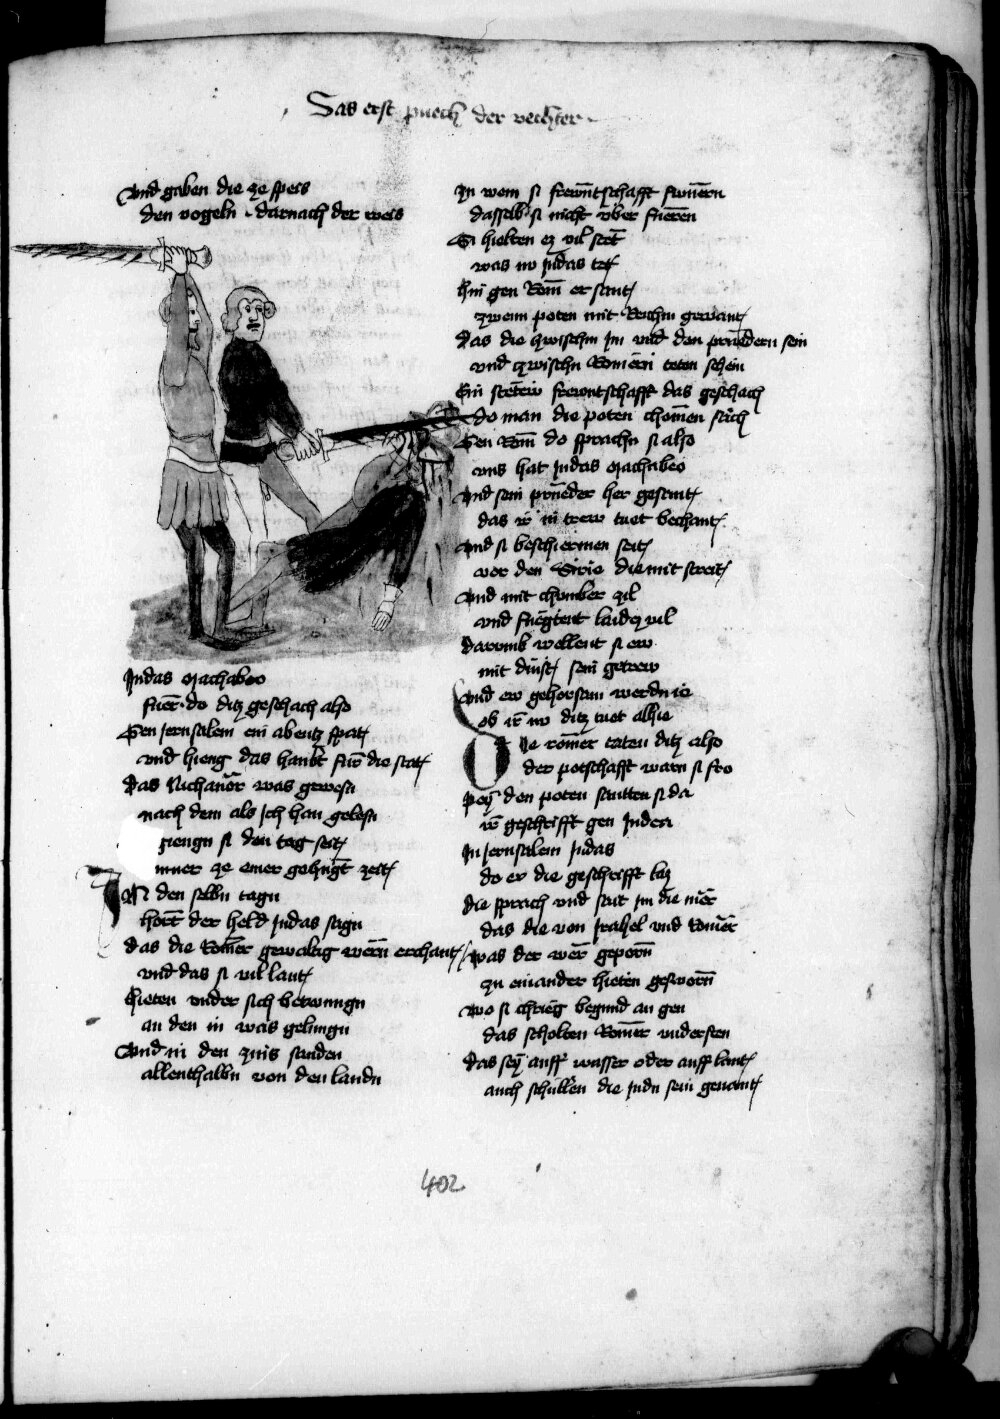 Das erst puech der vechter
Vnd gaben die ze speis
den vogeln darnach der weis
Judas Machabeo
fuer do ditz geschach also
Gen Jerusalem ein abentz spat
vnd hieng das haubt fur die stat
das Nichanor was gewesn
nach dem als Jch han gelesn
giengn si den tag seit
ymmer ze einer gehugt zeit
IN den selbn tagn
hort der held Judas sagn
das die Romer gewaltig wern erchant
vnd das si vil lant
hieten vnder sich betwungn
an den in was gelungn
Vnd in den zins sanden
allenthalbn von den landn
Jn wem si frewntschafft swuern
dasselb si nicht vber fueren
Si hielten ez vil stet
was nv Judas tet
hin gen Rom er sant
zwenn poten mit Rechm gewant
das die zwischn im vnd den pruedern sein
vnd zwischn Romern teten schein
Ein steten frewntschafft das geschach
do man die poten chomen sach
Gen Rom do sprachn si also
vns hat Judas Machabeo
Vnd sein prueder her gesant
das ir in trew tuet bechant
Vnd si beschiermen seit
vor den Sirie die mit streit
Vnd mit chumber zil
vnd fuegtent laidez vil
darumb wellent si ew
mit dinst sein getrew
Vnd ew gehorsam werdn ie
ob ir nv ditz tuet alhie
DIe romer taten ditz also
der potschafft warn si fro
pey den poten santten si da
ir geschrifft gen Judea
Jn Jerusalem Judas
do er die geschrifft laz
die sprach vnd sait im die mer
das die von Jrahel vnd Romer
was der wer geporn
zu einander hieten gesworn
wo si chrieg begund an gen
das scholten Romer vndersten
das sey auff wasser oder auff lant
auch schullen die Judn sein genant
402